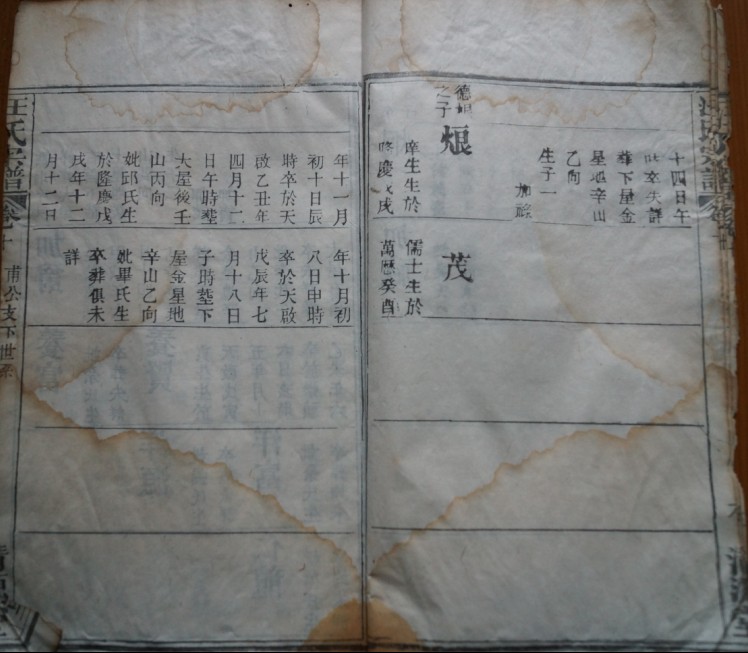 十四日午
時卒失詳
葬下屋金
星地辛山
乙向
生子一
加
德
之子
庠生生於
慶 戌
茂
儒士生於
萬曆癸酉
汪氏宗譜
卷十
甫公支下世系
年十一月
初十日辰
時卒於天
啟乙丑年
四月十二
日午時塟
大屋後壬
山丙向
妣邱氏生
於隆慶戊
戌年十二
月十二日
年十月初
八日申時
卒於天啟
戊辰年七
月十八日
子時塟下
屋金星地
辛山乙向
妣畢氏生
卒葬俱未
詳